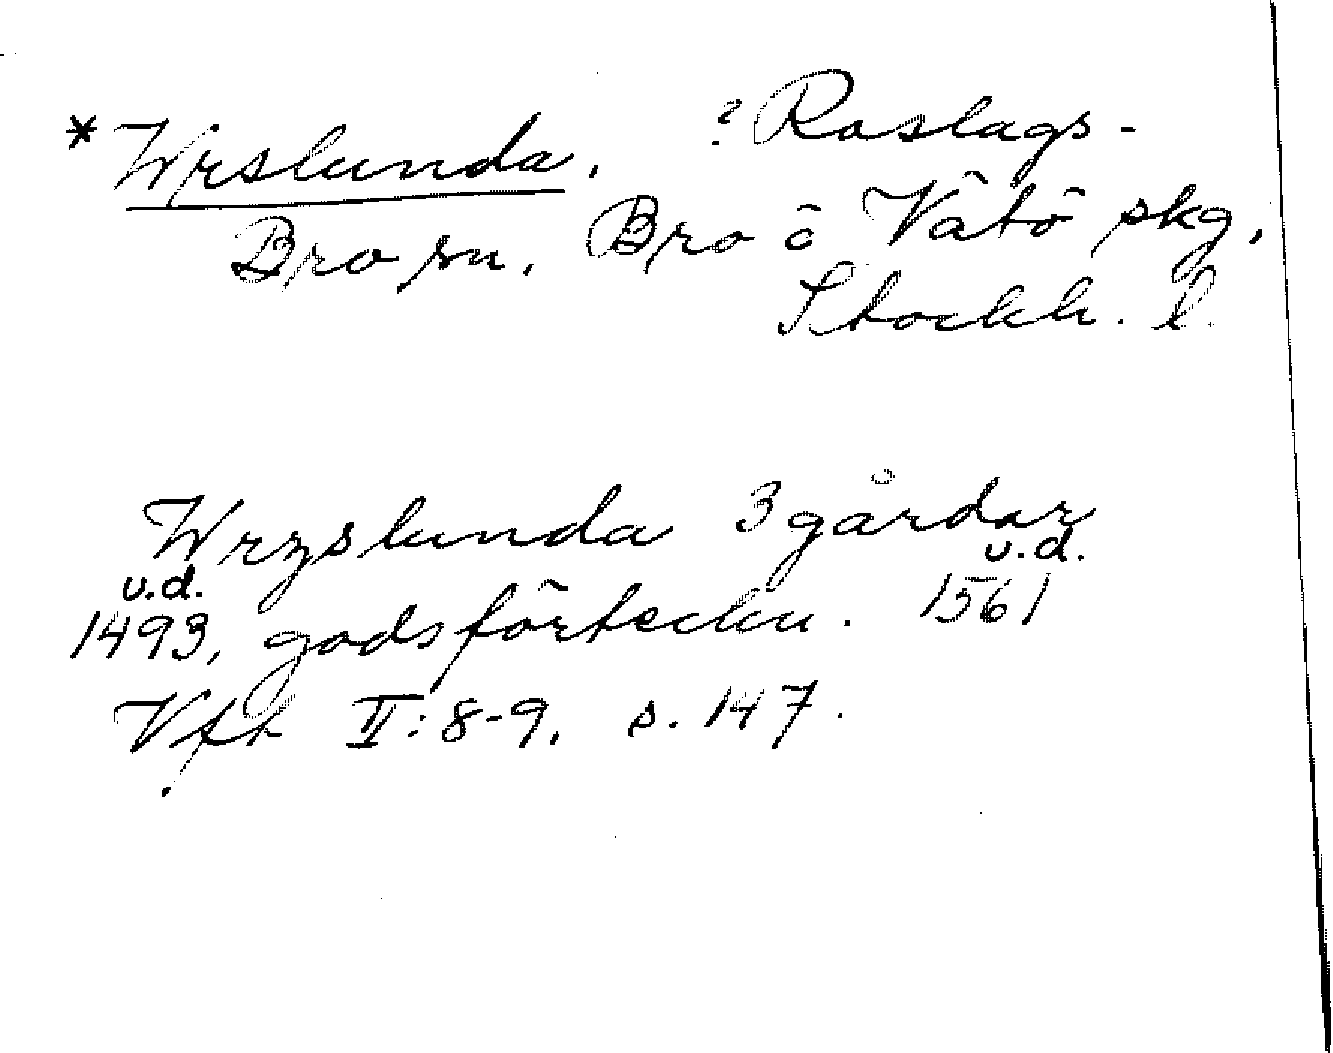 * Wrslunda. ? Roslags-
Bro sn. Bro o Vätö skg,
Stockh. l.
Wrzslunda 3 gårdar
u.d. u.d.
1493, godsförteckn. 1561
Vft II: 8-9, s. 147.